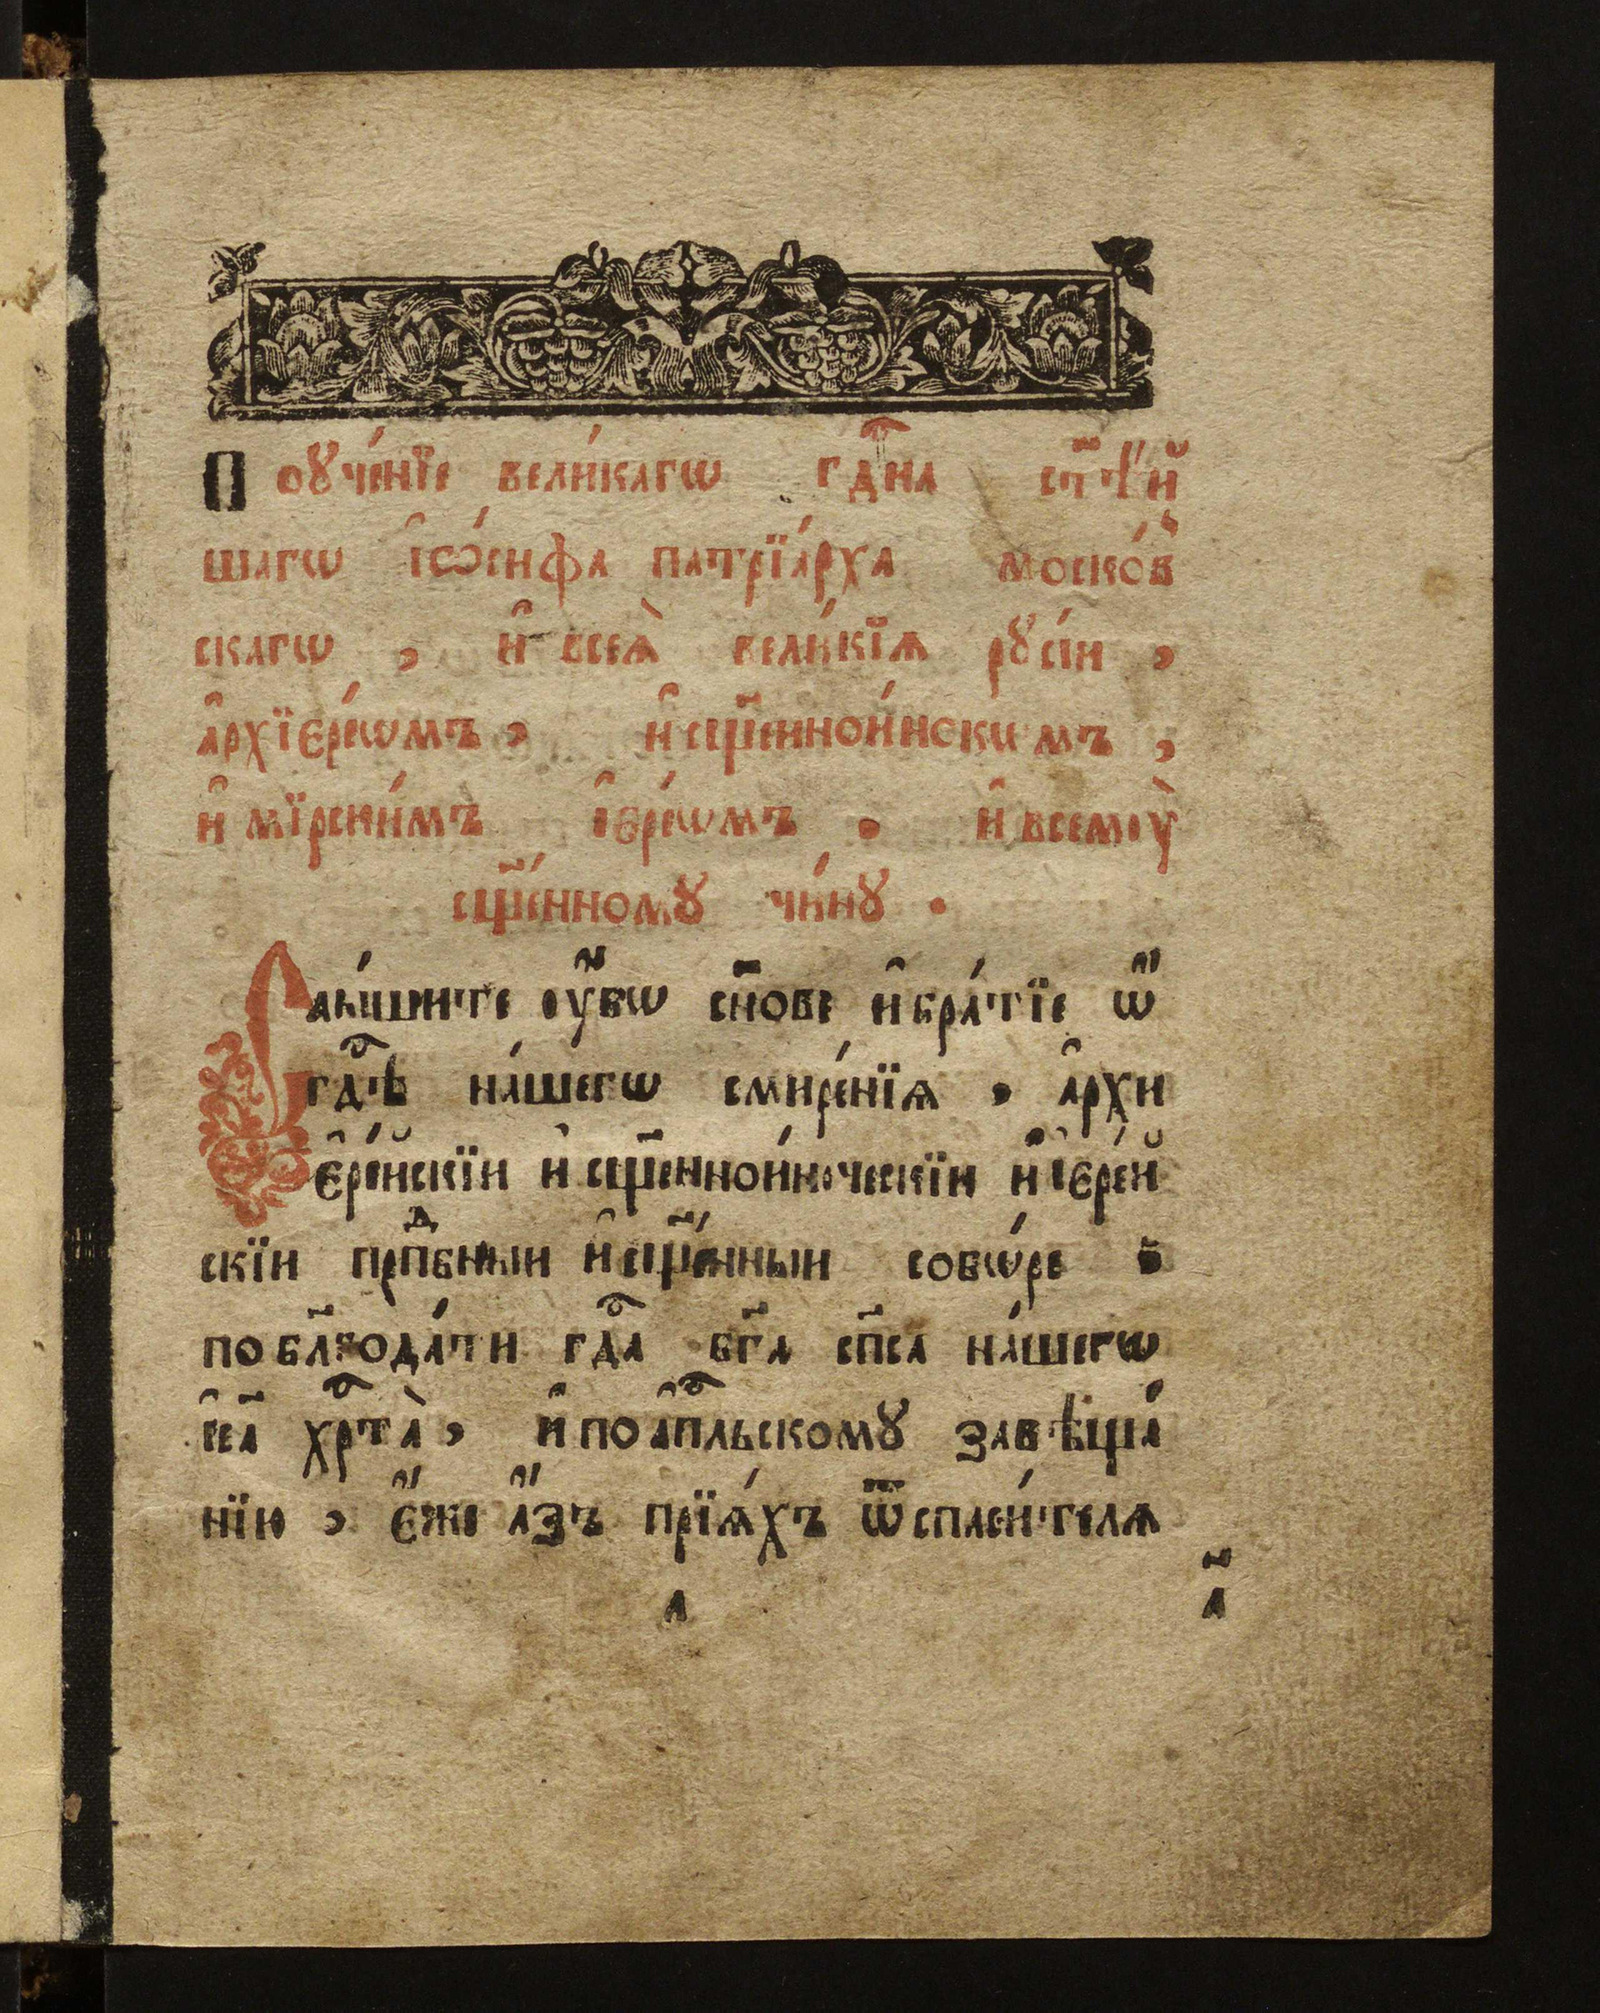 Поꙋче́нїе вели́кагѡ гдⷭ҇на ст҃ѣ́й
шагѡ і҆ѡ́сифа патрїа́рха моско́в
скагѡ , и҆ всеѧ̀ вели́кїѧ рꙋсі́и ,
а҆рхїере́ѡмъ , и҆ сщ҃еннои́нокимъ ,
и҆ мїрски́мъ і҆ере́ѡмъ . и҆ всемꙋ̀
сщ҃е́нномꙋ чи́нꙋ .
Слы́шите ᲂу҆́бѡ сн҃ове и҆ бра́тїе ѡ҆́
гдⷭ҇ѣ на́шегѡ смире́нїѧ , а҆рхи
є҆ре́йскїи и҆ сщ҃еннои́ноческїи и҆ і҆ере́й
скїи прпⷣбныи и҆ сщ҃е́нныи собѡ́ре
по бл҃года́ти гдⷭ҇а бг҃а сп҃са на́шегѡ
і҆с҃а хрⷭ҇та̀ , и҆ по а҆пⷭ҇льскомꙋ завѣща́
нїю , є҆́же а҆́зъ прїѧ́хъ ѿ спаси́телѧ
а
а҃